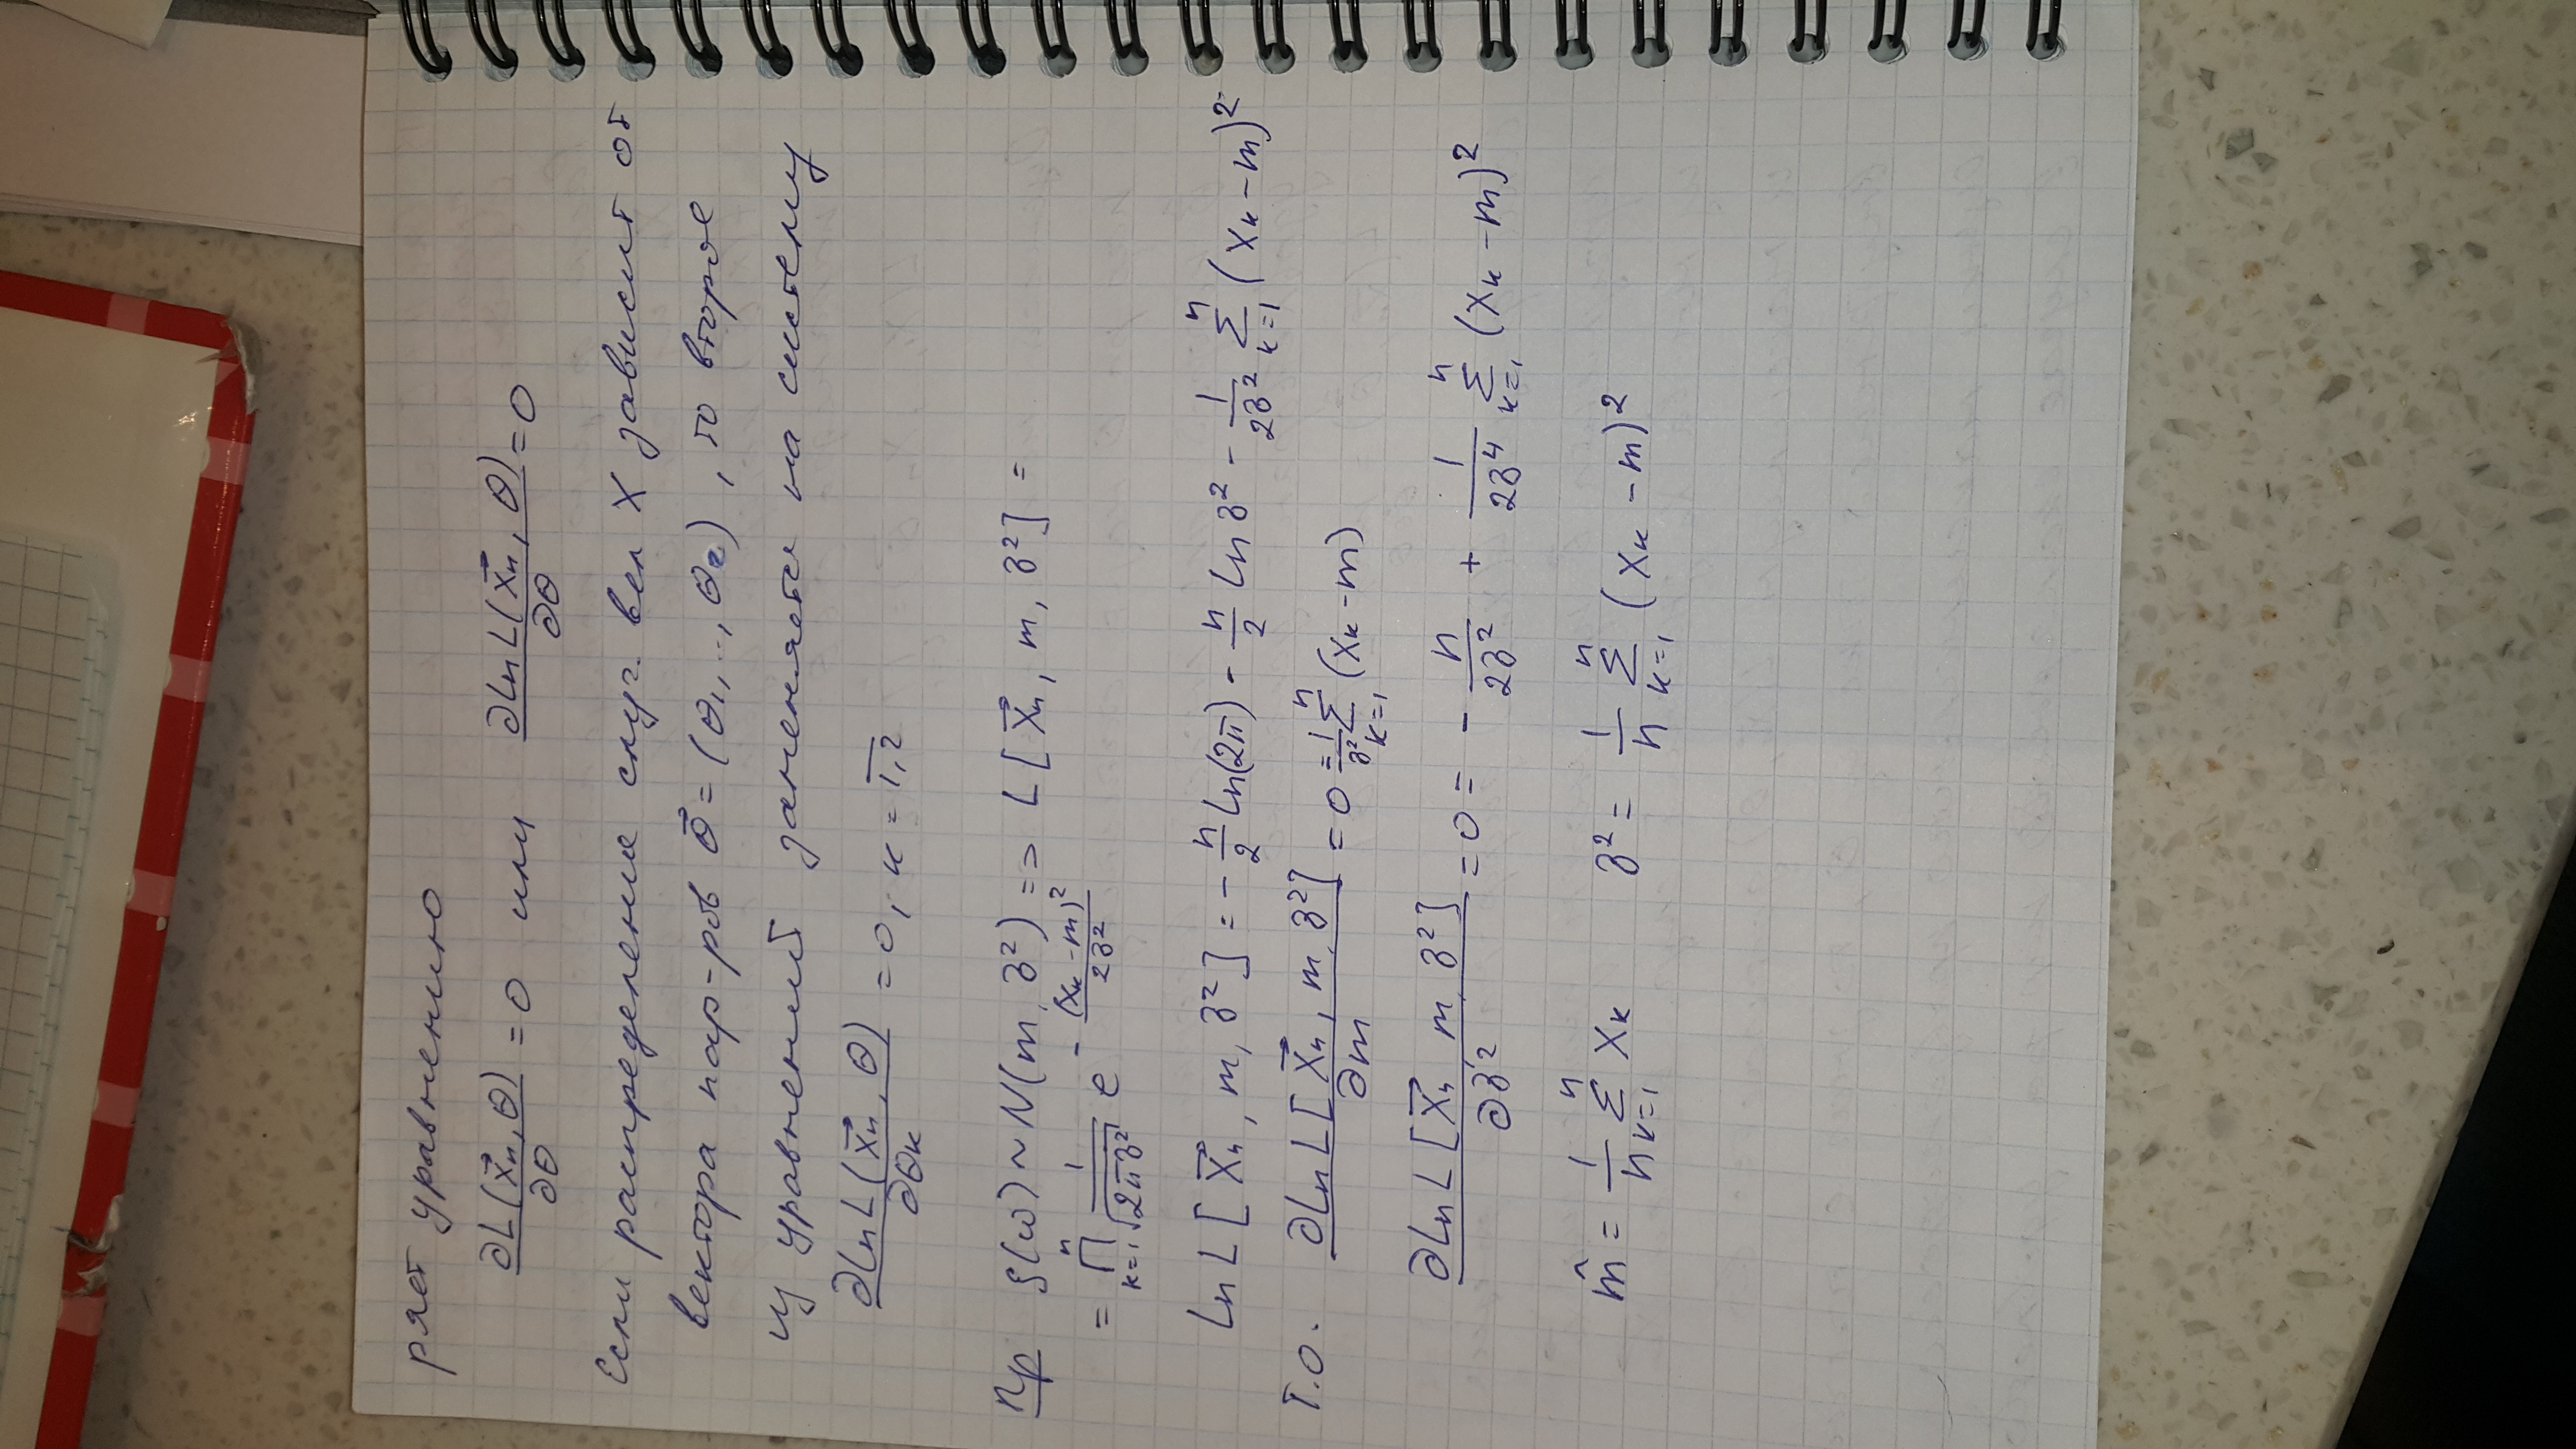 ряет уравнению
∂L(x⃗ₙ, θ)/∂θ = 0 или ∂Ln L(x⃗ₙ, θ)/∂θ = 0
Если распределение случ. вел X зависит от
вектора пар-ров θ⃗ = (θ₁, .., θ₂) , то второе
из уравнений заменяется на систему
∂Ln L(x⃗ₙ, θ)/∂θκ = 0, κ = 1,2
Пр ξ(ω) ~ N(m, σ²) => L[x⃗ₙ, m, σ²] =
= ∏ₖ₌₁ⁿ 1/√(2πσ²) e^(-(xₖ - m)²/2σ²)
Ln L[x⃗ₙ, m, σ²] = - n/2 Ln(2π) - n/2 Ln σ² - 1/2σ² Σₖ₌₁ⁿ (xₖ - m)²
Т.о. ∂Ln L[x⃗ₙ, m, σ²]/∂m = 0 = 1/σ² Σₖ₌₁ⁿ (xₖ - m)
∂Ln L[x⃗ₙ, m, σ²]/∂σ² = 0 = - n/2σ² + 1/2σ⁴ Σₖ₌₁ⁿ (xₖ - m)²
m̂ = 1/n Σₖ₌₁ⁿ xₖ σ² = 1/n Σₖ₌₁ⁿ (xₖ - m)²